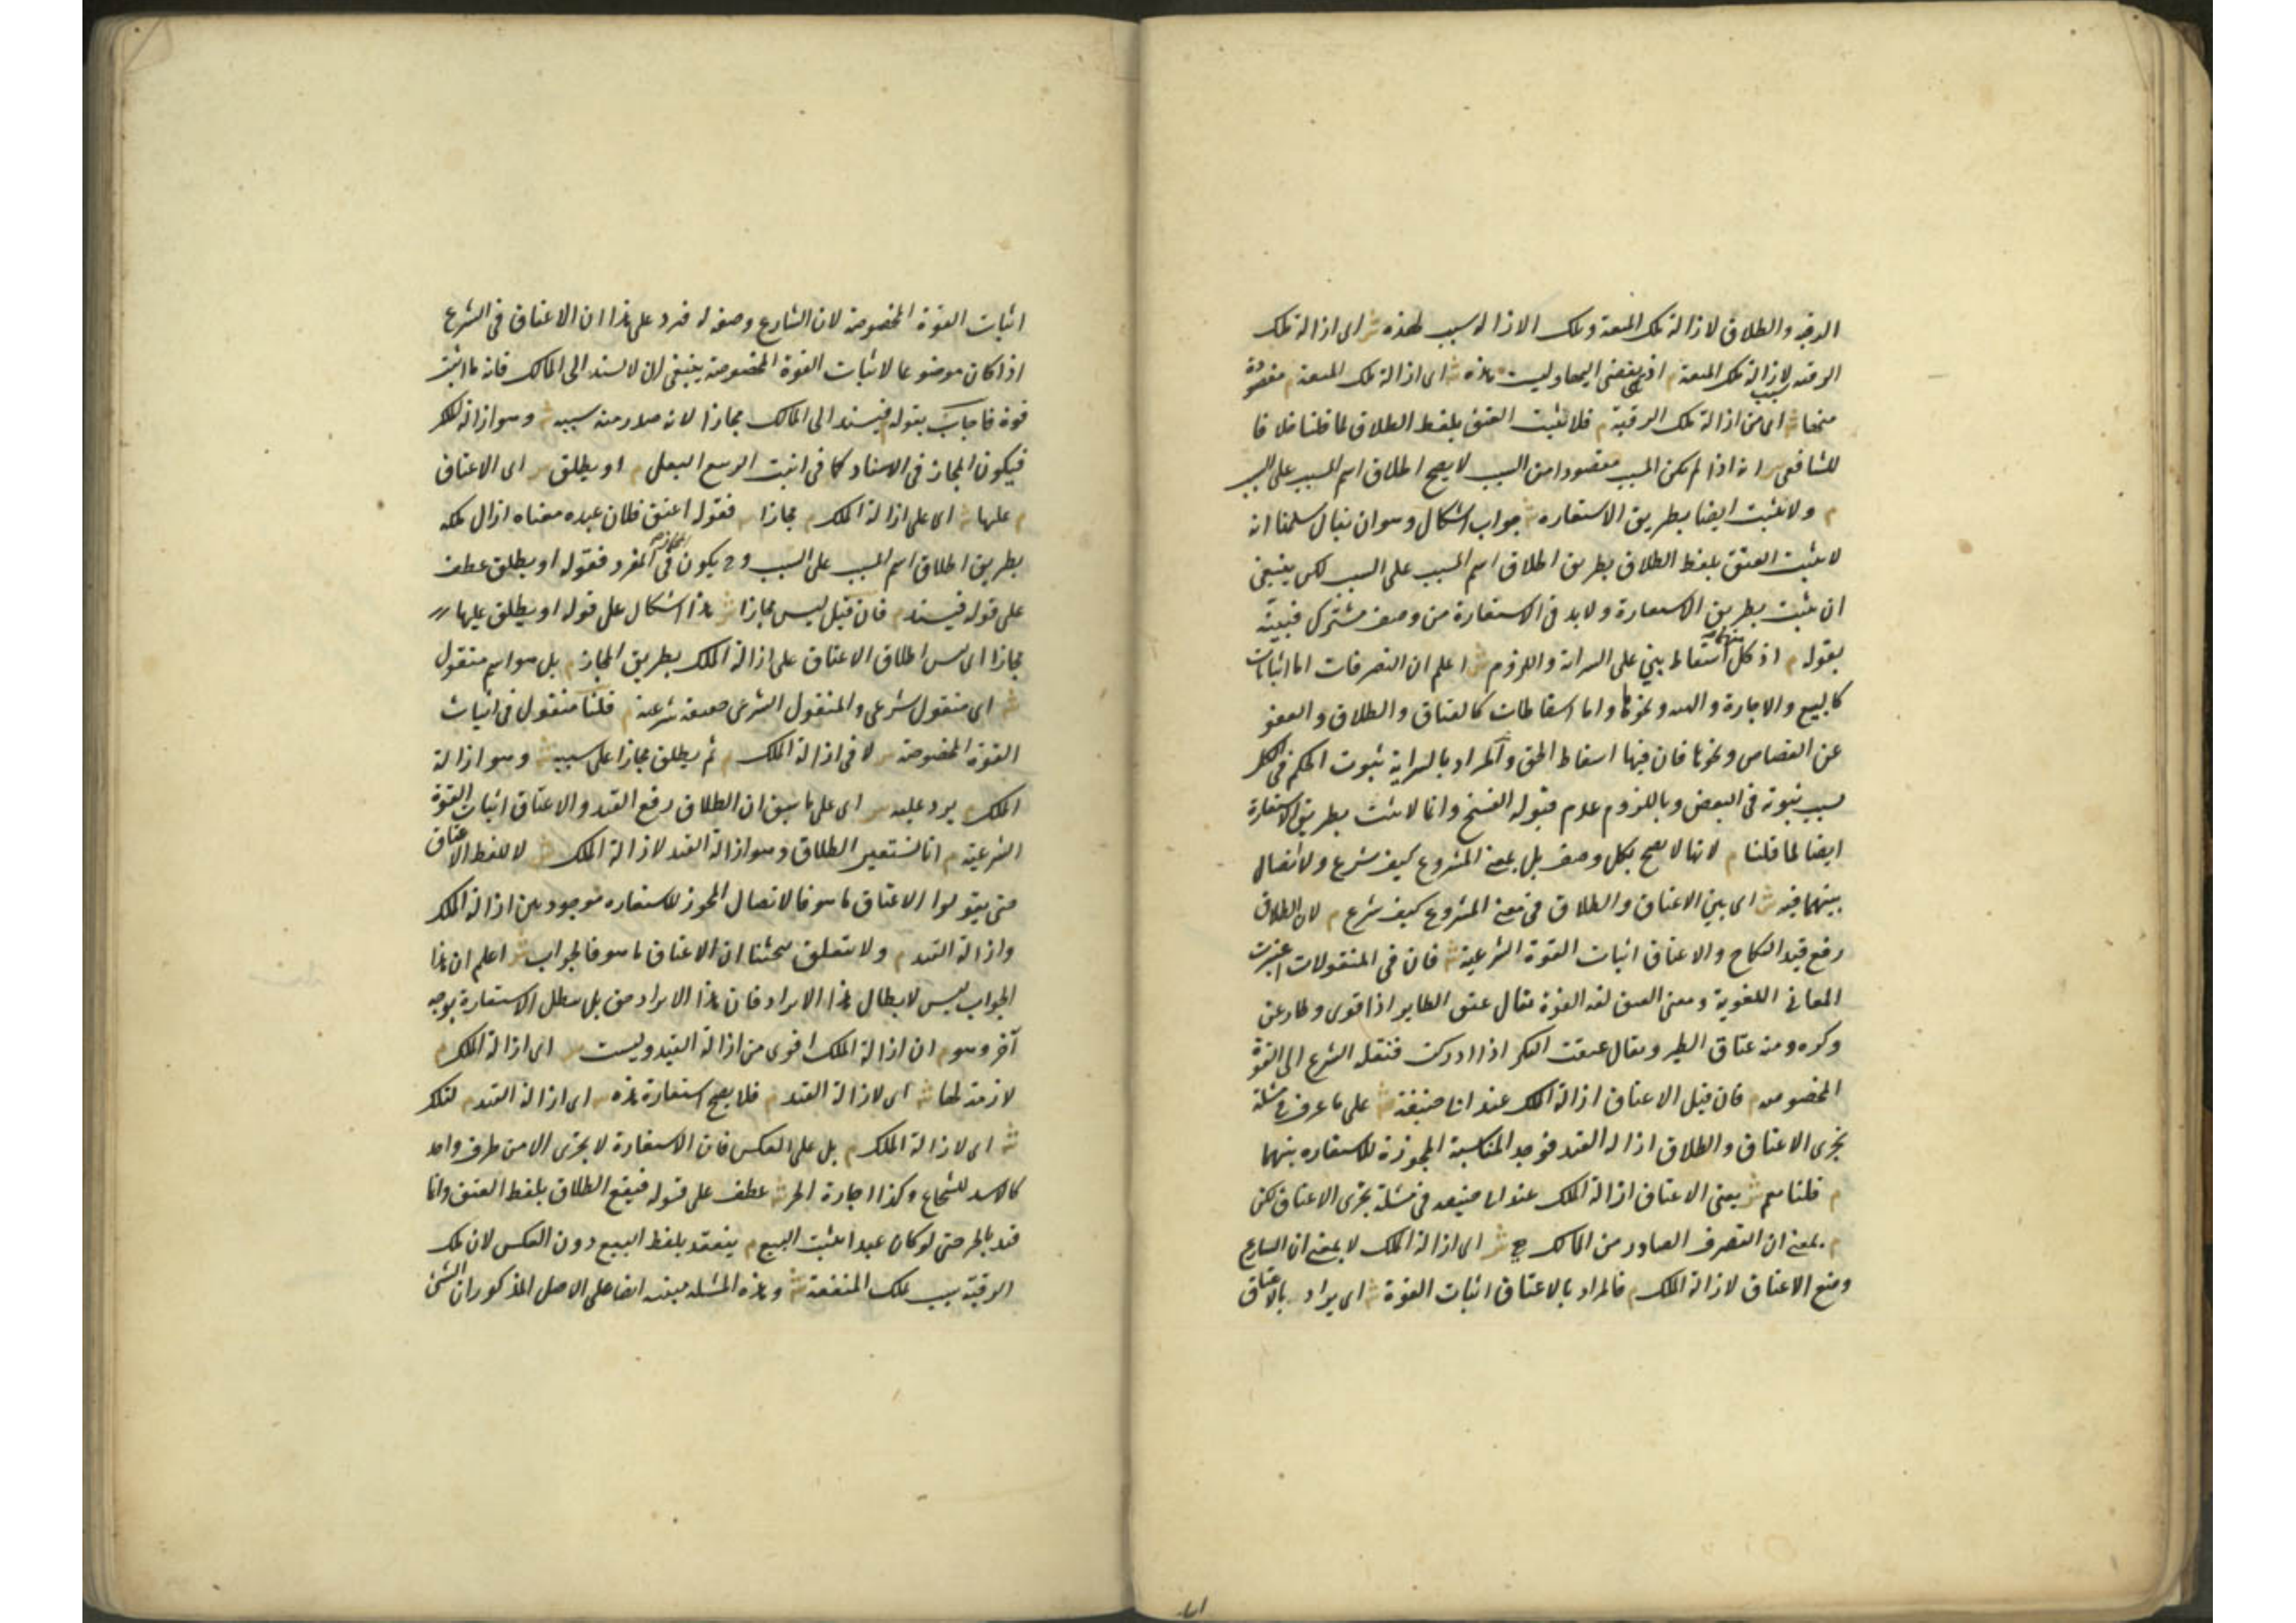 الرقبة والطلاق لازالة ملك المتعة وتلك الازالة سبب لهذه ش اى ازالة ملك
الرقبة سبب لازالة ملك المتعة م اذ هى تفضى اليها وليست هذه ش اى ازالة ملك المتعة م مقصودة
منها ش اى من ازالة ملك الرقبة م فلا يثبت العتق بلفظ الطلاق لما قلنا خلافا
للشافعى ش انه اذا لم يكن المسبب مقصودا من السبب لا يصح اطلاق اسم المسبب على السبب
م ولا يثبت ايضا بطريق الاستعارة ش جواب اشكال وهو ان يقال سلمنا انه
لا يثبت العتق بلفظ الطلاق بطريق اطلاق اسم المسبب على السبب لكن ينبغى
ان يثبت بطريق الاستعارة ولا بد فى الاستعارة من وصف مشترك فبينه
بقوله م اذ كل منهما اسقاط بنى على السراية واللزوم ش اعلم ان التصرفات اما اثباتات
كالبيع والاجارة والهبة ونحوها واما اسقاطات كالعتاق والطلاق والعفو
عن القصاص ونحوها فان فيها اسقاط الحق والمراد بالسراية ثبوت الحكم فى الكل
بسبب ثبوته فى البعض وباللزوم عدم قبوله الفسخ وانما لا يثبت بطريق الاستعارة
ايضا لما قلنا م لانها لا تصح بكل وصف بل بمعنى المشروع كيف شرع ولا اتصال
بينهما فيه ش اى بين الاعتاق والطلاق فى معنى المشروع كيف شرع م لان الطلاق
رفع قيد النكاح والاعتاق اثبات القوة الشرعية ش فان فى المنقولات اعتبرت
المعانى اللغوية ومعنى العتق لغة القوة يقال عتق الطاير اذا قوى وطار عن
وكره ومنه عتاق الطير ويقال عتقت البكر اذا ادركت فنقله الشرع الى القوة
المخصوصة م فان قيل الاعتاق ازالة الملك عند ابى حنيفة ش على ما عرف فى مسئلة
تجزى الاعتاق والطلاق ازالة القيد فوجد المناسبة المجوزة للاستعارة بينهما
م قلنا نعم ش يعنى الاعتاق ازالة الملك عند ابى حنيفة فى مسئلة تجزى الاعتاق لكن
م بمعنى ان التصرف الصادر من المالك هى ش اى ازالة الملك لا بمعنى ان الشارع
وضع الاعتاق لازالة الملك م فالمراد بالاعتاق اثبات القوة ش اى يراد بالاعتاق
اثبات القوة المخصوصة لان الشارع وضعه له فيرد على هذا ان الاعتاق فى الشرع
اذا كان موضوعا لاثبات القوة المخصوصة ينبغى ان لا يسند الى المالك فانه ما اثبت
قوة فاجاب بقوله م فيسند الى المالك مجازا لانه صدر منه سببه ش وهو ازالة الملك
فيكون المجاز فى الاسناد كما فى انبت الربيع البقل م او يطلق ش اى الاعتاق
م عليها ش اى على ازالة الملك م مجازا ش فقوله اعتق فلان عبده معناه ازال ملكه
بطريق اطلاق اسم المسبب على السبب وح يكون المجاز فى المفرد فقوله او يطلق عطف
على قوله فيسند م فان قيل ليس مجازا ش هذا اشكال على قوله او يطلق عليها
مجازا اى ليس اطلاق الاعتاق على ازالة الملك بطريق المجاز م بل هو اسم منقول
ش اى منقول شرعى والمنقول الشرعى حقيقة شرعية م قلنا منقول فى اثبات
القوة المخصوصة ش لا فى ازالة الملك م ثم يطلق مجازا على سببه ش وهو ازالة
الملك م يرد عليه ش اى على ما سبق ان الطلاق رفع القيد والاعتاق اثبات القوة
الشرعية م انا نستعير الطلاق وهو ازالة القيد لازالة الملك ش لا للفظ الاعتاق
حتى يقولوا الاعتاق ما هو فالاتصال المجوز للاستعارة موجود بين ازالة الملك
وازالة القيد م ولا يتعلق بحثنا ان الاعتاق ما هو فالجواب ش اعلم ان هذا
الجواب ليس لابطال هذا الايراد فان هذا الايراد حق بل يبطل الاستعارة بوجه
آخر وهو م ان ازالة الملك اقوى من ازالة القيد وليست ش اى ازالة الملك م
لازمة لها ش اى لازالة القيد م فلا يصح استعارة هذه ش اى ازالة القيد م لتلك
ش اى لازالة الملك م بل على العكس فان الاستعارة لا تجرى الا من طرف واحد
كالاسد للشجاع وكذا اجارة الحر ش عطف على قوله فيقع الطلاق بلفظ العتق وانما
قيد بالحر حتى لو كان عبدا يثبت البيع م ينعقد بلفظ البيع دون العكس لان ملك
الرقبة سبب ملك المنفعة ش وهذه المسئلة مبنية ايضا على الاصل المذكور ان الشئ